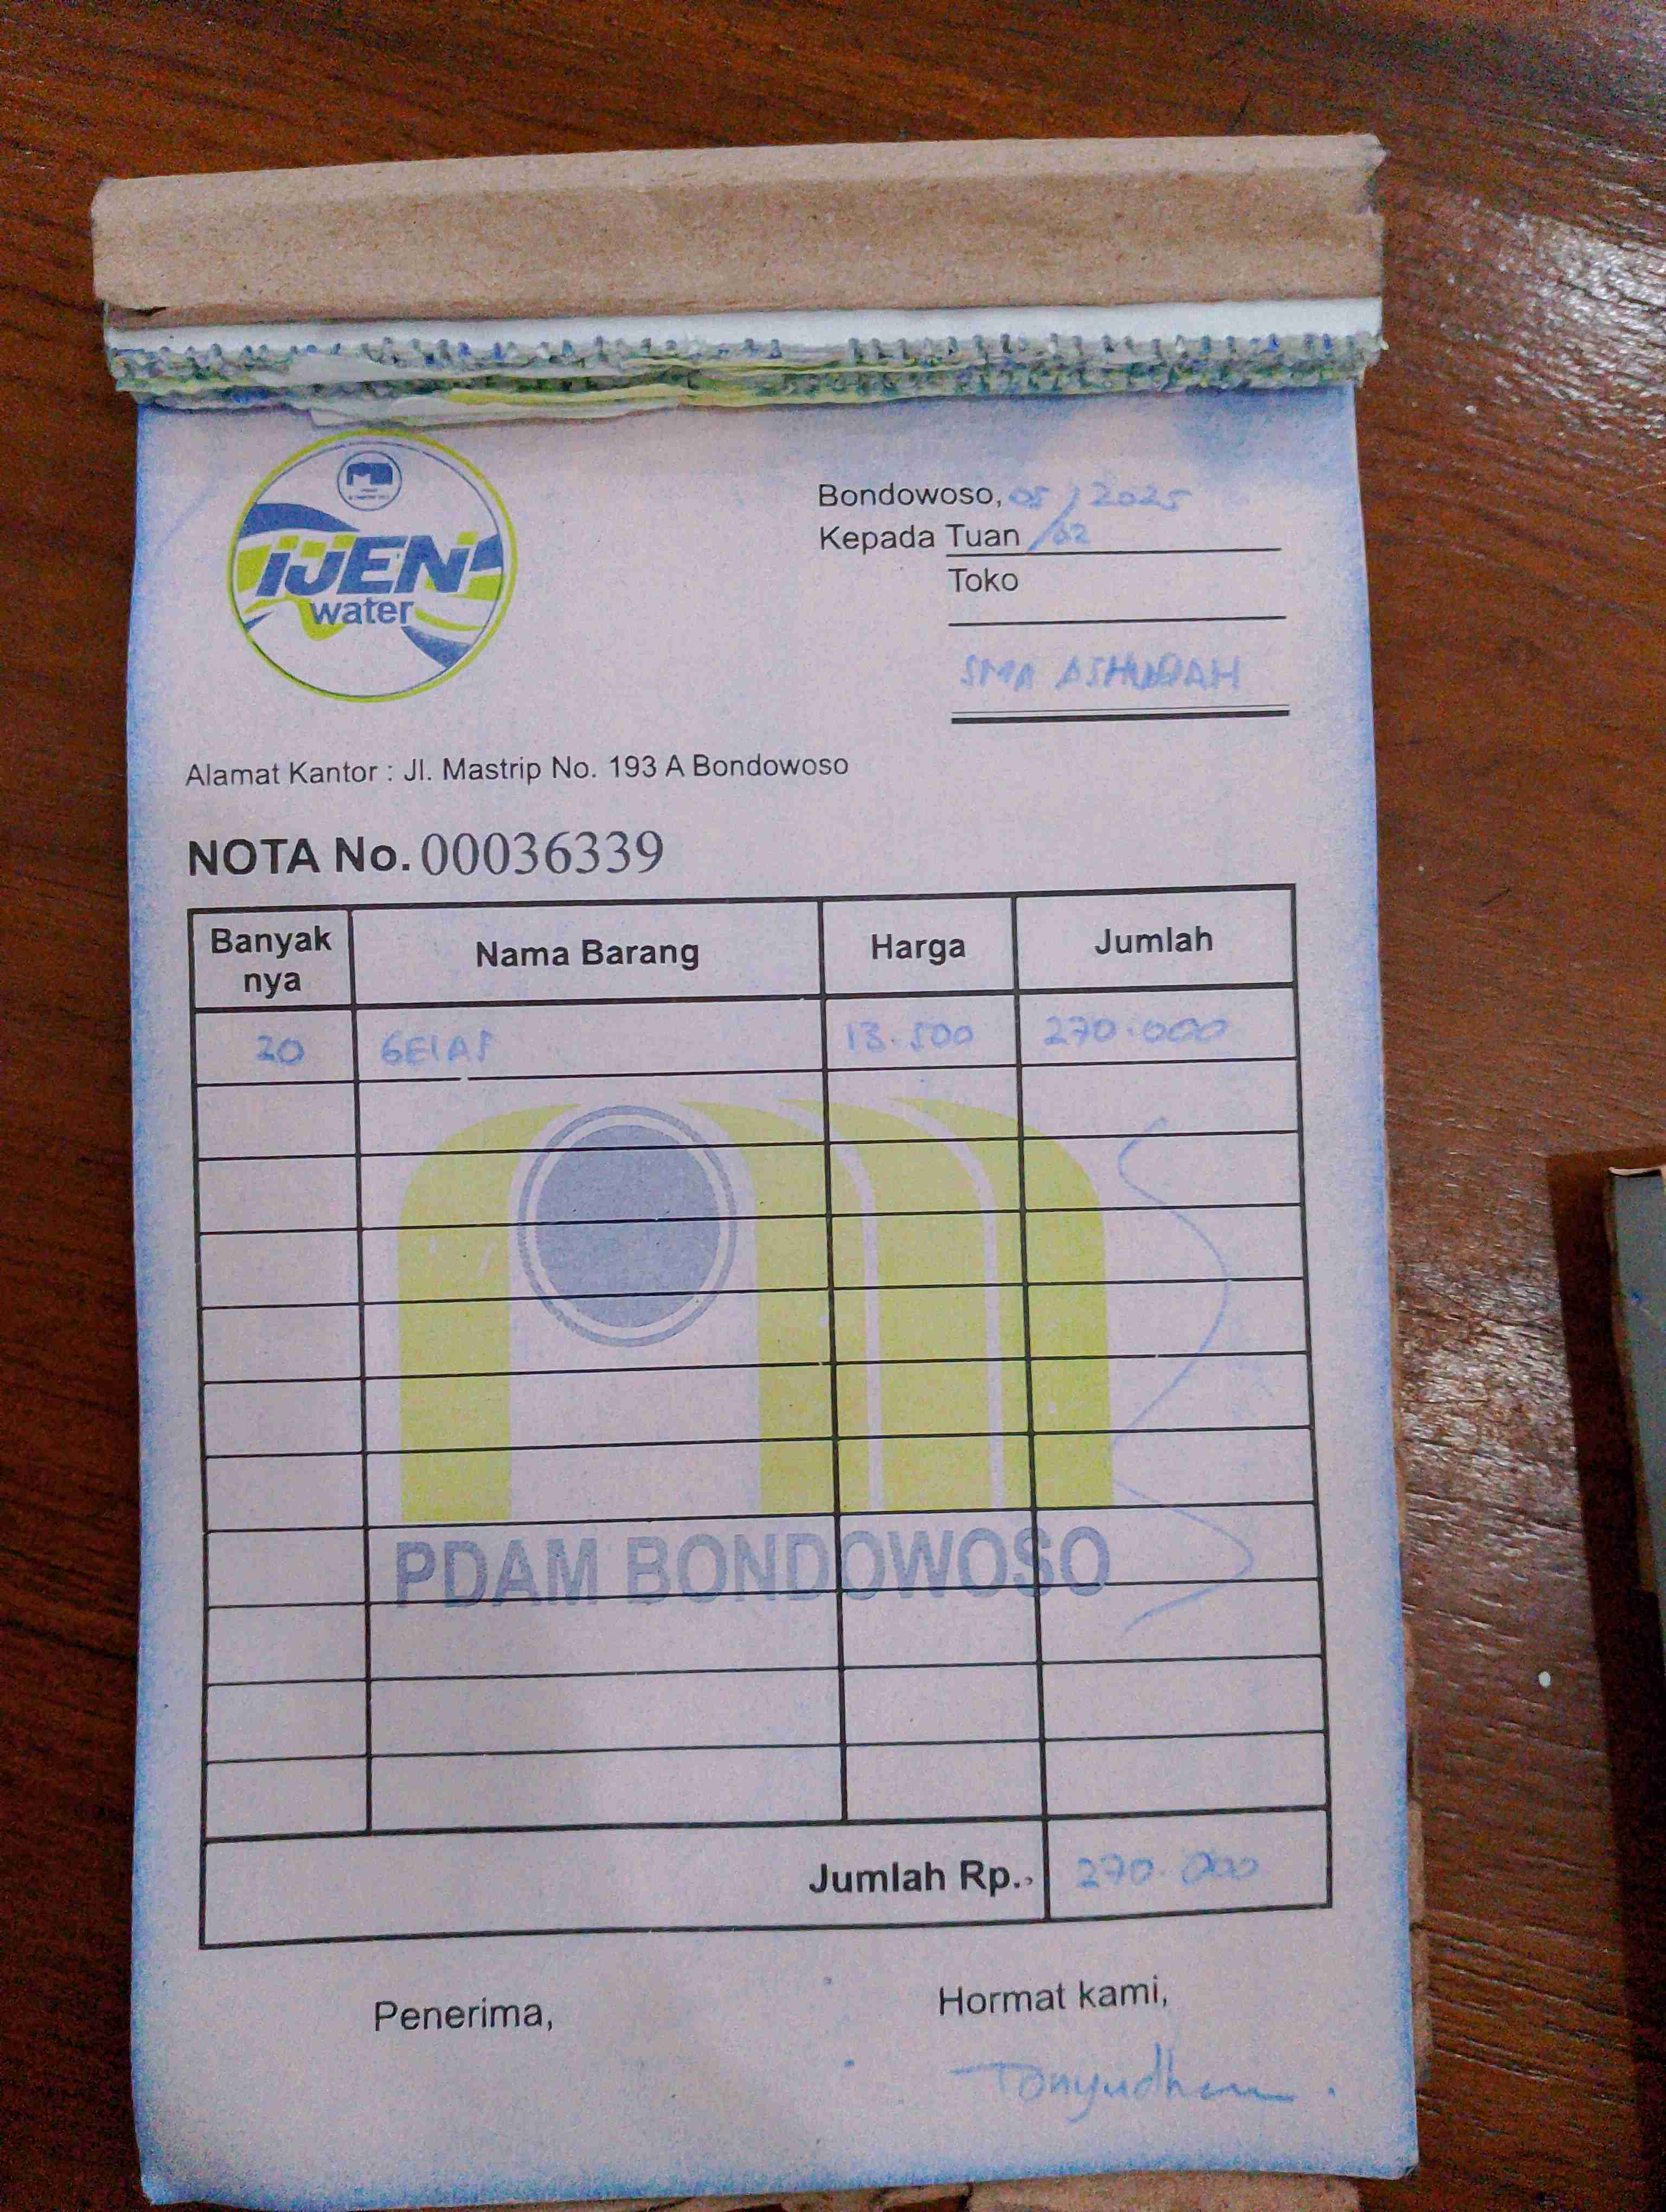 IJEN
water
Bondowoso, 05/02/2025
Kepada Tuan
Toko
SMA ASHUDAH
Alamat Kantor : Jl. Mastrip No. 193 A Bondowoso
NOTA No. 00036339
Banyak nya Nama Barang Harga Jumlah
20 GELAS 13.500 270.000
PDAM BONDOWOSO
Jumlah Rp., 270.000
Penerima, Hormat kami,